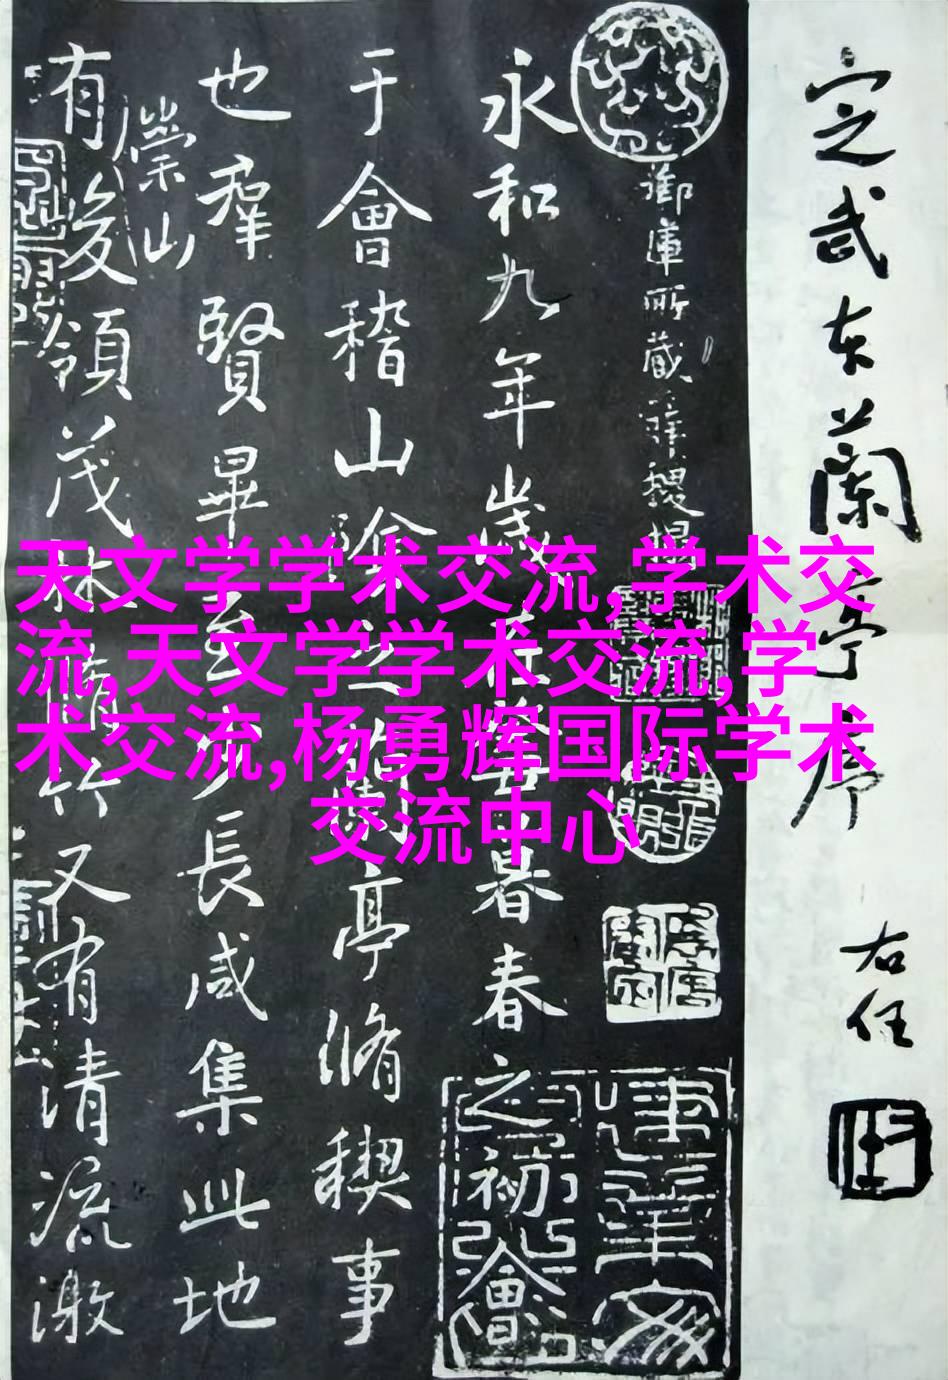 定武本蘭亭序
右任
御庫所藏
永和九年歲在癸丑暮春之初會
于會稽山陰之蘭亭脩稧事
也羣賢畢至少長咸集此地
有崇山峻領茂林脩竹又有清流激
天文学学术交流,学术交
流,天文学学术交流,学
术交流,杨勇辉国际学术
交流中心